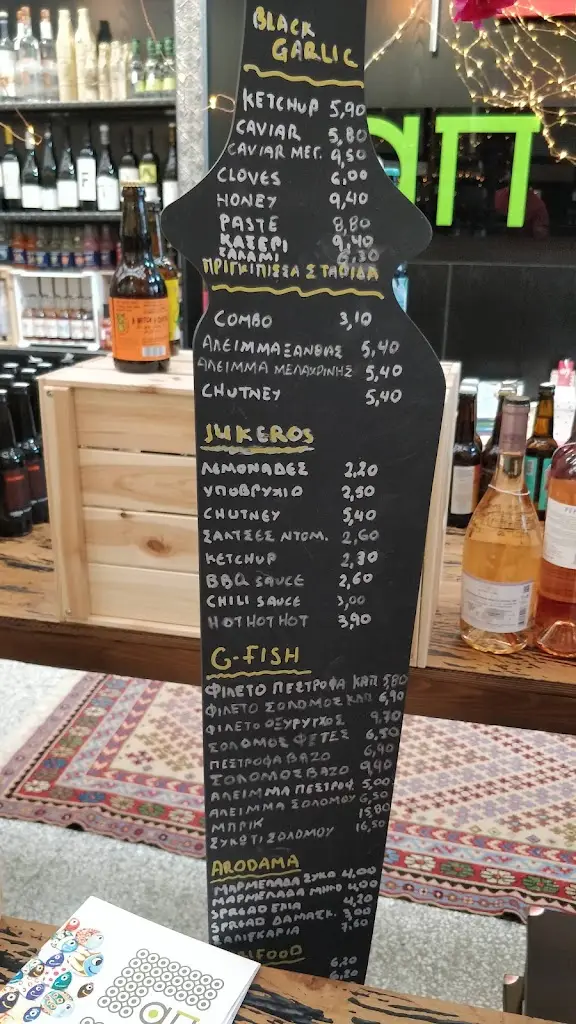 BLACK
GARLIC
KETCHUP 5,90
CAVIAR 5,80
CAVIAR ΜΕΓ. 9,50
CLOVES 6,00
HONEY 9,40
PASTE 8,80
ΚΑΣΕΡΙ 9,40
ΣΑΛΑΜΙ 8,30
ΠΡΙΓΚΙΠΙΣΣΑ ΣΤΑΡΙΔΑ
COMBO 3,10
ΑΛΕΙΜΜΑ ΞΑΝΘΙΑΣ 5,40
ΑΛΕΙΜΜΑ ΜΕΛΑΧΡΙΝΗΣ 5,40
CHUTNEY 5,40
JUKEROS
ΛΕΜΟΝΑΔΕΣ 2,20
ΥΠΟΒΡΥΧΙΟ 2,50
CHUTNEY 5,40
ΣΑΛΤΣΕΣ ΝΤΟΜ. 2,60
KETCHUP 2,80
BBQ SAUCE 2,60
CHILI SAUCE 3,00
HOT HOT HOT 3,90
G-FISH
ΦΙΛΕΤΟ ΠΕΣΤΡΟΦΑ ΚΑΠ 5,80
ΦΙΛΕΤΟ ΣΟΛΟΜΟΣ ΚΑΠ 6,90
ΦΙΛΕΤΟ ΟΞΥΡΥΓΧΟΣ 9,70
ΣΟΛΟΜΟΣ ΦΕΤΕΣ 6,50
ΠΕΣΤΡΟΦΑ ΒΑΖΟ 6,90
ΣΟΛΟΜΟΣ ΒΑΖΟ 9,90
ΑΛΕΙΜΜΑ ΠΕΣΤΡΟΦ. 5,00
ΑΛΕΙΜΜΑ ΣΟΛΟΜΟΥ 6,50
ΜΠΡΙΚ 15,80
ΣΥΚΩΤΙ ΣΟΛΟΜΟΥ 16,50
ARODAMA
ΜΑΡΜΕΛΑΔΑ ΣΥΚΟ 4,00
ΜΑΡΜΕΛΑΔΑ ΜΗΛΟ 4,00
SPREAD ΕΛΙΑ 4,20
SPREAD ΔΑΜΑΣΚ. 3,00
ΣΑΛΙΓΚΑΡΙΑ 7,60
FOOD
6,20
6,20
απ
απ